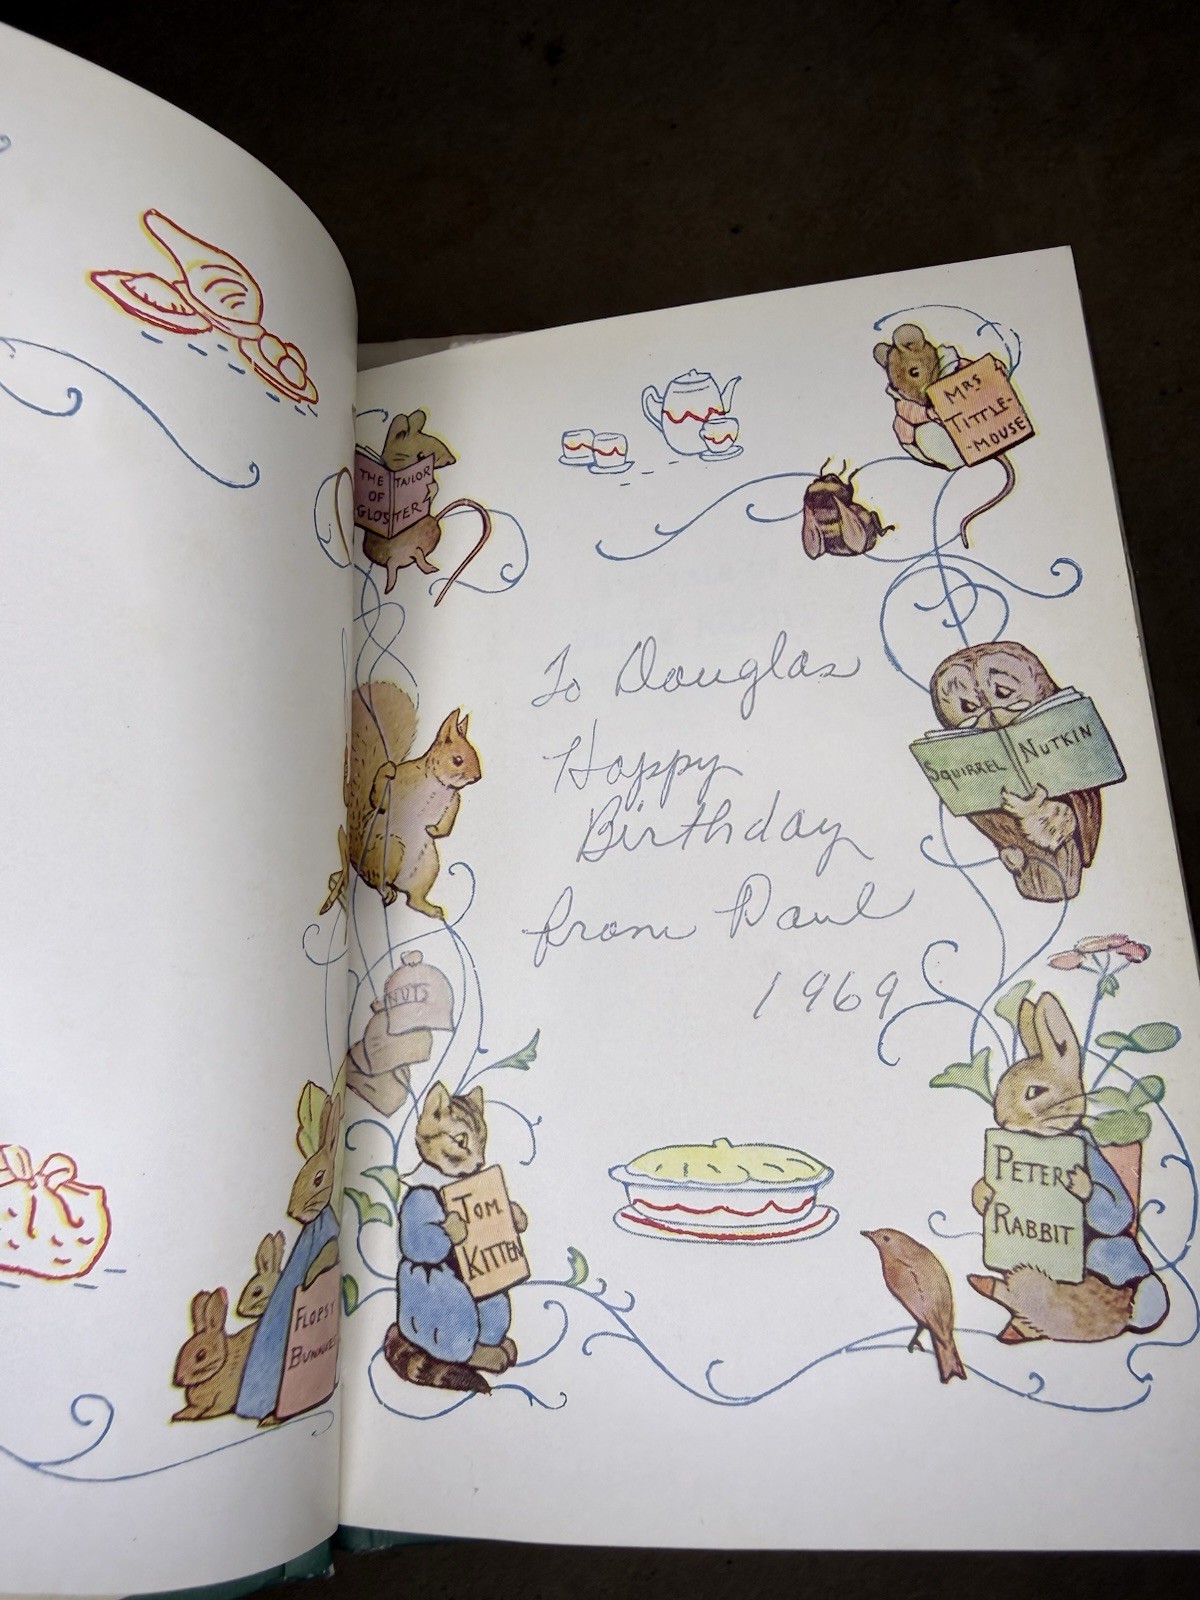 THE TAILOR
OF
GLOSTER
MRS
TITTLE-
-MOUSE
SQUIRREL NUTKIN
To Douglas
Happy
Birthday
From Paul
1969
NUTS
TOM
KITTEN
PETER
RABBIT
FLOPSY
BUNNIES